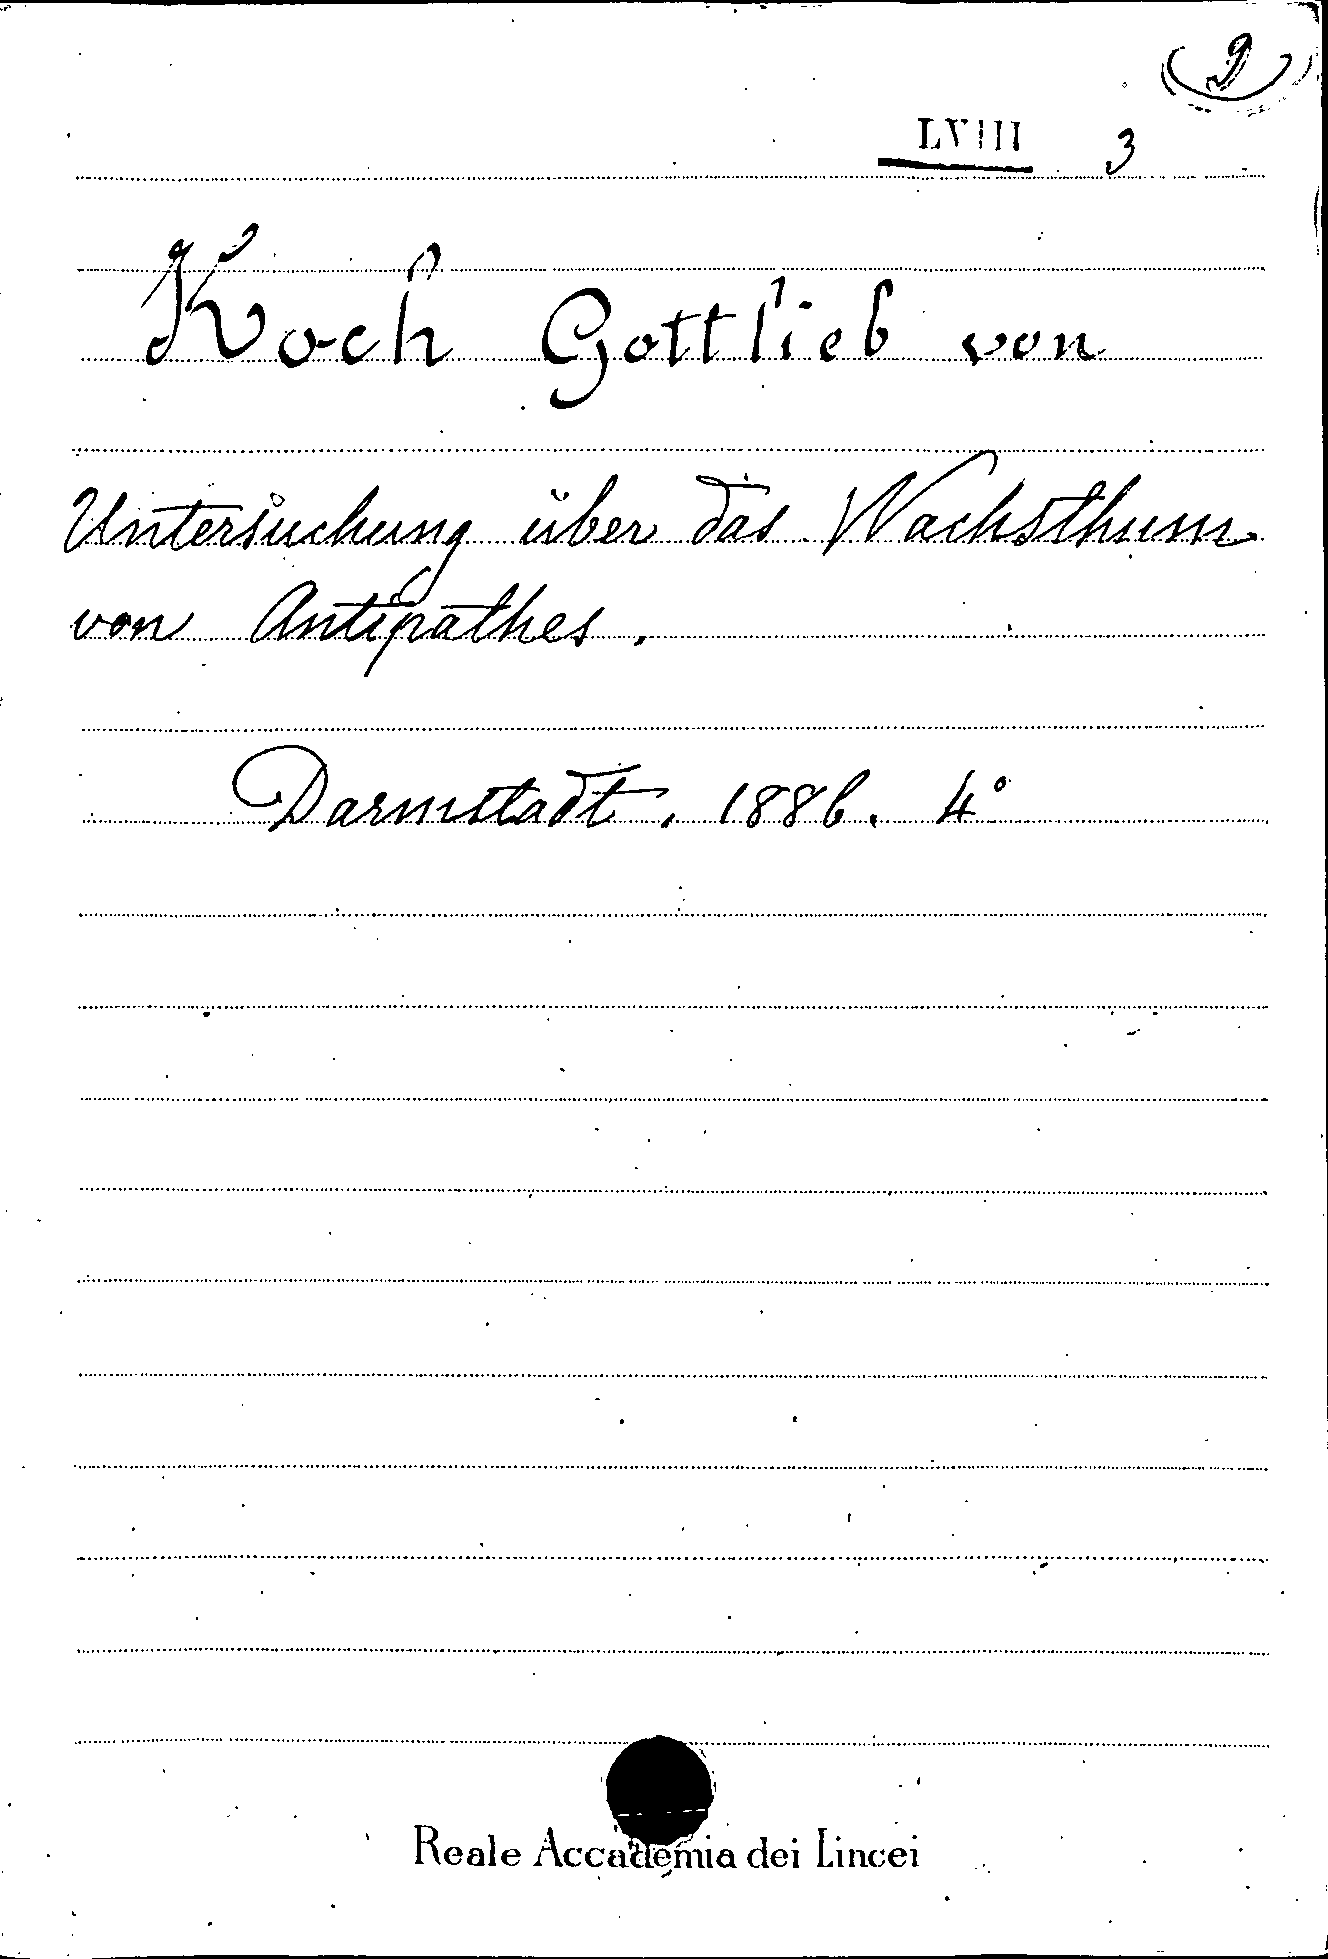 D
LVIII 3
Koch Gottlieb von
Untersuchung über das Wachsthum
von Antipathes.
Darmstadt. 1886. 4°
Reale Accademia dei Lincei